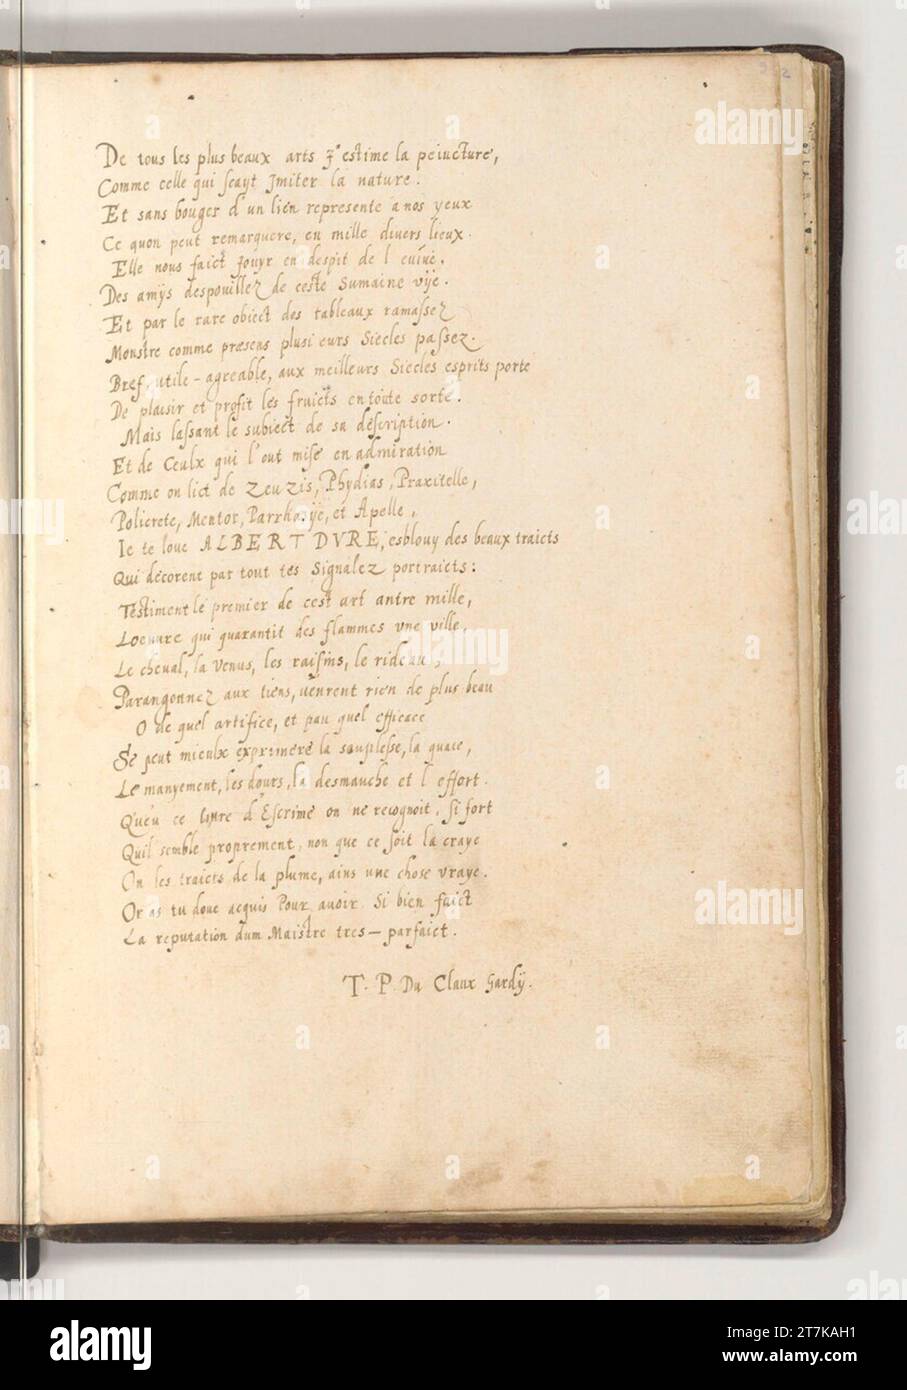 De tous les plus beaux arts J'estime la peincture,
Comme celle qui scayt Jmiter la nature.
Et sans bouger d'un lieu represente a nos yeux
Ce quon peut remarquere, en mille divers lieux.
Elle nous faict Jouyr en despit de l'envie.
Des amys despouillez de ceste humaine vye.
Et par le rare obiect des tableaux ramassez
Monstre comme presens plusieurs Siecles passez.
Bref, utile-agreable, aux meilleurs Siecles esprits porte
De plaisir et profit les fruicts en toute sorte.
Mais lassant le subiect de sa description.
Et de Ceulx qui l'ont mise en admiration
Comme on lict de Zeuzis, Phydias, Praxitelle,
Policrete, Mentor, Parrhasye, et Apelle,
Je te loue ALBERT DVRE, esblouy des beaux traicts
Qui decorent par tout tes Signalez portraicts:
Testiment le premier de cest art antre mille,
Loeuvre qui guarantit des flammes une ville,
Le cheval, la Venus, les raisins, le rideau,
Parangonnez aux tiens, n'eurent rien de plus beau
O de quel artifice, et pau quel efficace
Se peut mieulx exprimere la souplesse, la grace,
Le manyement, les tours, la desmarche et l'effort.
Qu'en ce livre d'Escrime on ne recognoit, si fort
Quil semble proprement, non que ce soit la craye
On les traicts de la plume, ains une chose vraye.
Or as tu donc acquis Pour avoir Si bien faict
La reputation dum Maistre tres-parfaict.
T. P. Du Claux hardy.
alamy
Image ID: 2T7KAH1
www.alamy.com